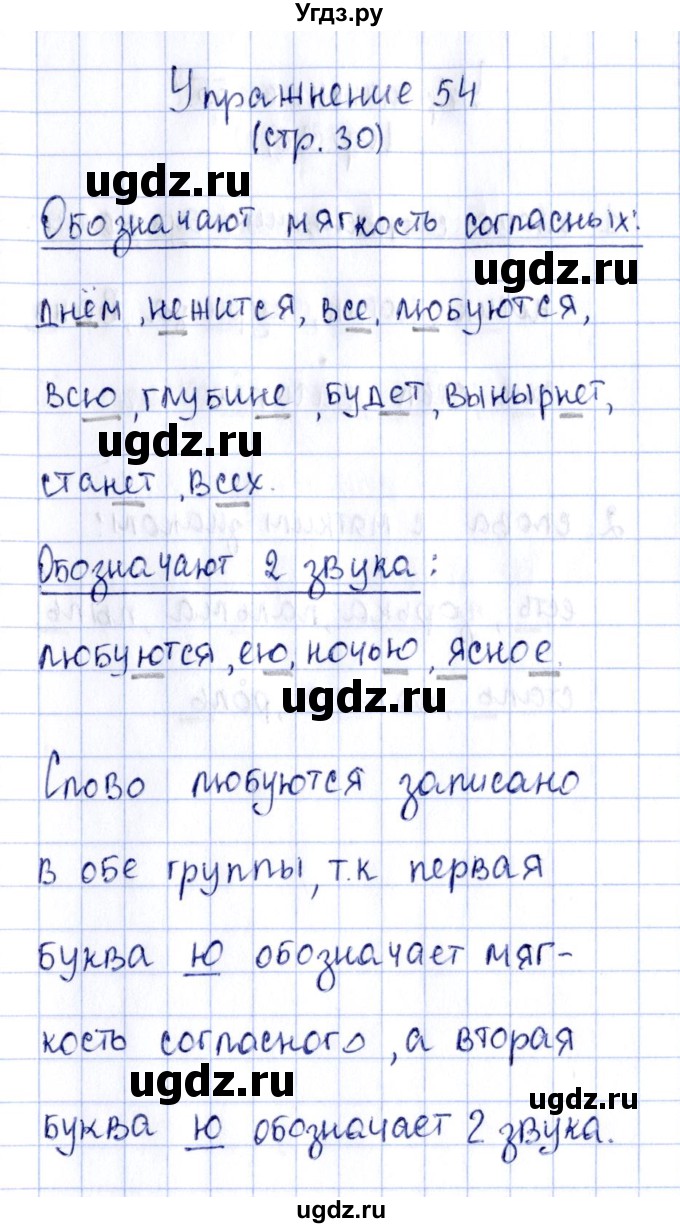 Угдз.ру
Упражнение 54
(стр. 30)
ugdz.ru
Обозначают мягкость согласных:
ugdz.ru
днём, нежится, все, любуются,
всю, глубине, будет, вынырнет,
ugdz.ru
станет, всех.
Обозначают 2 звука:
любуются, ею, ночью, ясное.
ugdz.ru
Слово любуются записано
в обе группы, т.к первая
буква ю обозначает мяг-
кость согласного, а вторая
ugdz.ru
ugdz.ru
буква ю обозначает 2 звука.
ugdz.ru